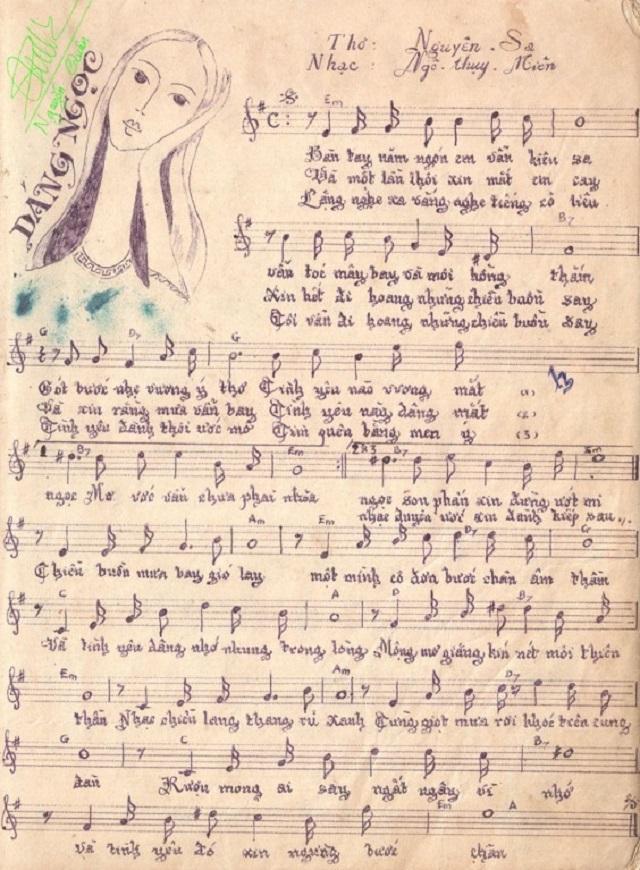 DÁNG NGỌC
Thơ: Nguyên - Sa
Nhạc: Ngô - thụy - Miên
Em
C:
Bàn tay năm ngón em vẫn kiêu sa
Và một lần thôi xin mắt em cay
Lắng nghe xa vắng nghe tiếng cô liêu
B7
vẫn tóc mây bay và môi hồng thắm
Xin hết đi hoang những chiều buồn say
Tôi vẫn đi hoang những chiều buồn say
G D7 G
Gót bước nhẹ vương ý thơ Tình yêu nào vương mắt (1)
Và xin rằng mưa vẫn bay Tình yêu nào dáng mắt (2)
Tình yêu đành thôi ước mơ Tìm quên bằng men ý (3)
1 B7 Em 2&3 B7 Em
ngọc Mơ ước vẫn chưa phai nhòa ngọc son phấn xin đừng ướt mi
nhạc duyên ước xin dành kiếp sau...
Am Em D7 G
Chiều buồn mưa bay gió lay một mình cô đơn bước chân âm thầm
C Am D B7
Và tình yêu dâng nhớ nhung trong lòng Mộng mơ giăng kín nét môi thiên
Em Am D7
thần Nhạc chiều lang thang rũ xanh Từng giọt mưa rơi khóc trên cung
G C B7
đàn Rượu mong ai say ngất ngây vì nhớ
Em A
Và tình yêu đó xin ngừng bước chân